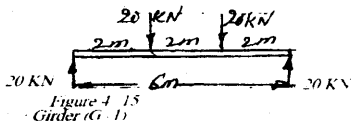 20 KN 20KN
2m 2m 2m
20 KN 6m 20 KN
Figure 4 15
Girder (G 1)